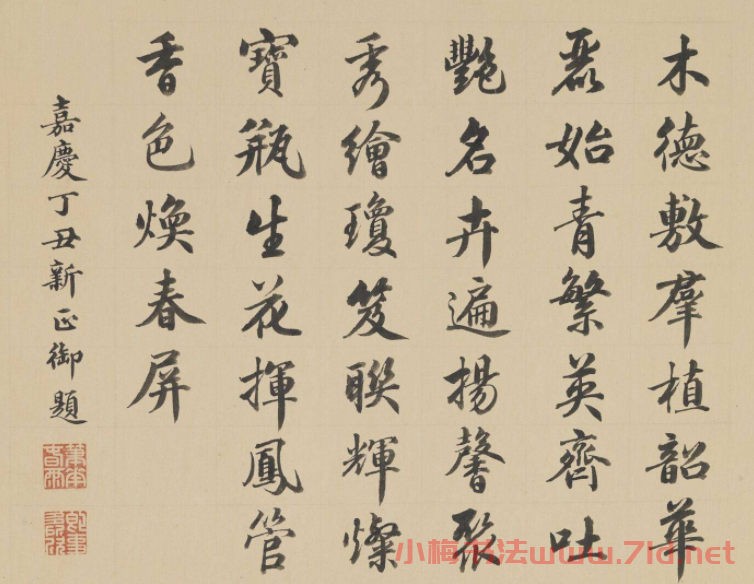 木德敷羣植韶華
麗始青繁英齊吐
艷名卉遍揚馨聚
秀繪瓊笈聯輝燦
寶瓶生花揮鳳管
香色煥春屏
嘉慶丁丑新正御題
小梅书法www.71d.net